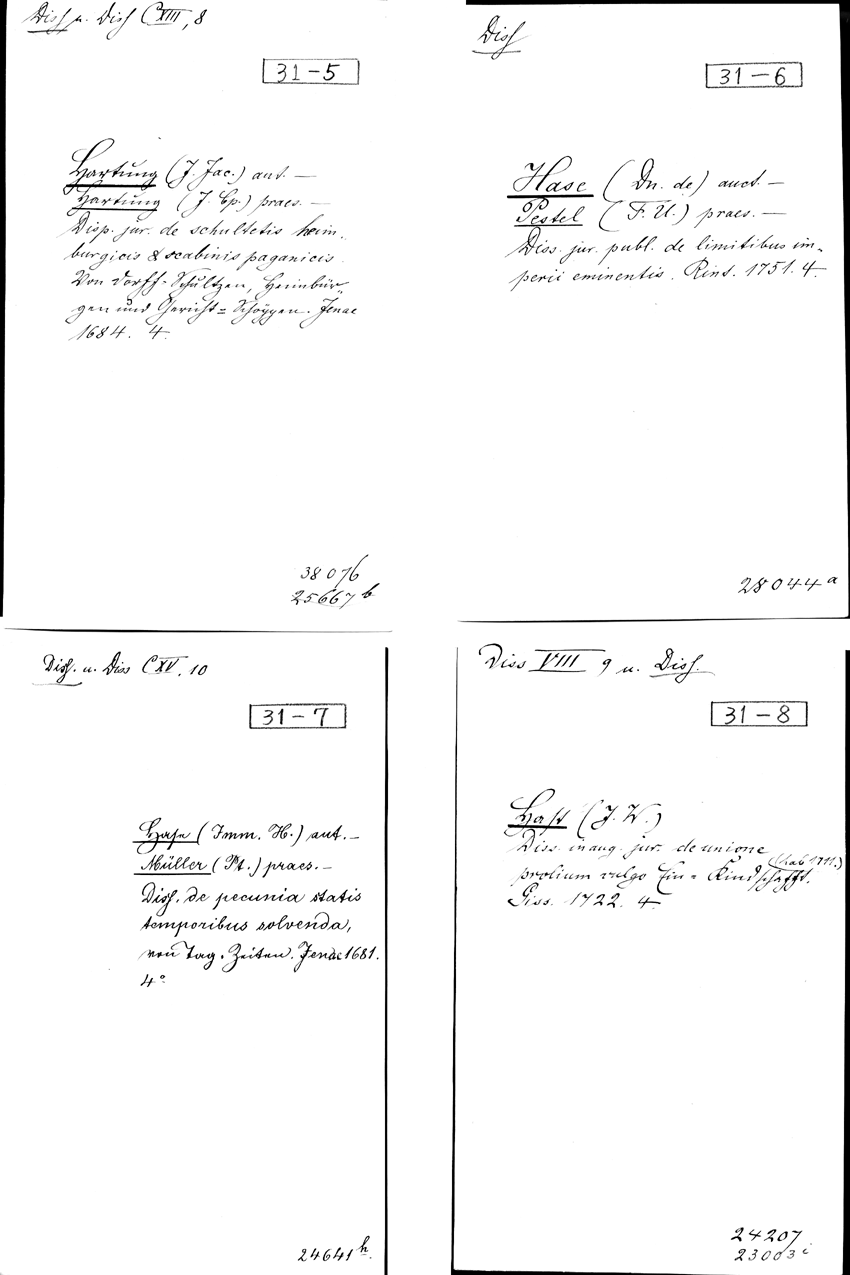 Diss u. Diss CXIII, 8
31-5
Hartung (J. Jac.) aut. —
Hartung (J. Cp.) praes. —
Disp. jur. de schultetis heim-
burgicis & scabinis paganicis
Von Dorff-Schultzen, Heimbür-
gen und Gericht-Schöppen. Jenae
1684. 4.
38076
25667 b
Diss
31-6
Hase (Dn. de) auct. —
Pestel (F. U.) praes. —
Diss. jur. publ. de limitibus im-
perii eminentis. Rint. 1751. 4.
28044 a
Diss. u. Diss CXV, 10
31-7
Hase (Imm. H.) aut. —
Müller (Pt.) praes. —
Diss. de pecunia statis
temporibus solvenda,
von Tag-Zeiten. Jenae 1681.
4°
24641 h.
Diss VIII 9 u. Diss.
31-8
Hast (J. W.)
Diss. inaug. jur. de unione
(hab 1711.)
prolium vulgo Ein-Kindschafft.
Giss. 1722. 4.
24207
23003 i